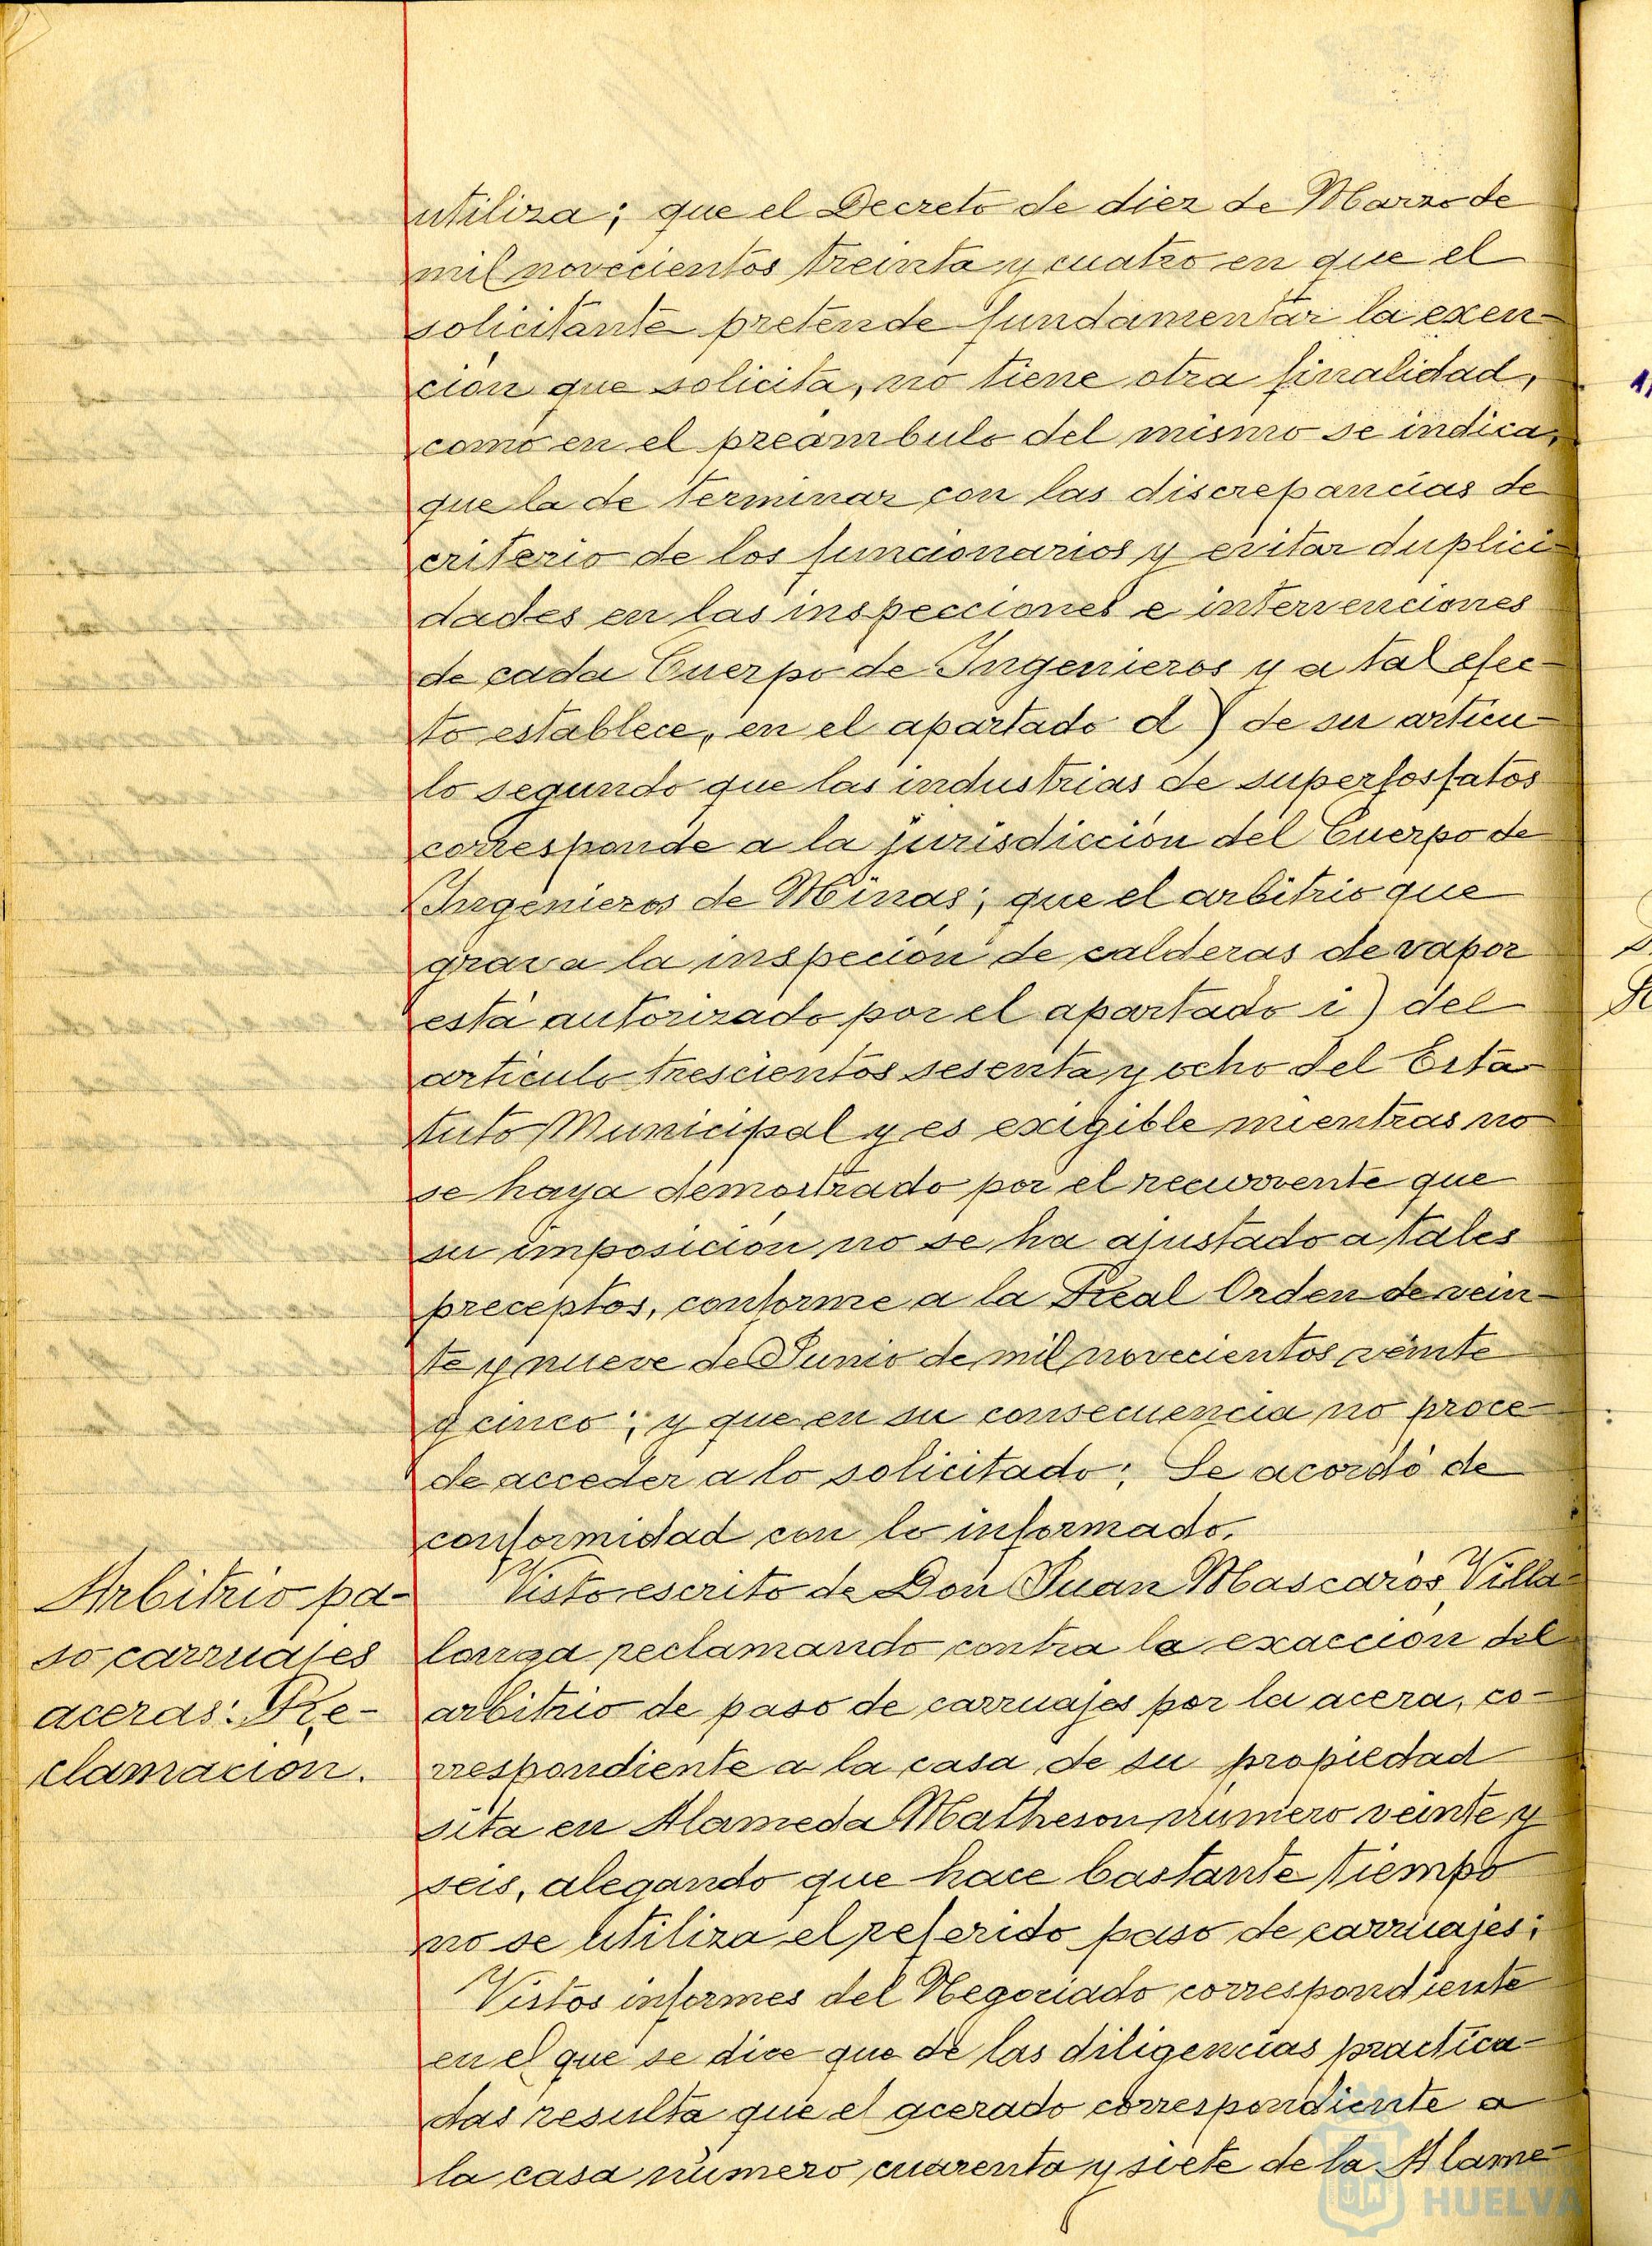 utiliza; que el Decreto de diez de Marzo de
mil novecientos treinta y cuatro en que el
solicitante pretende fundamentar la exen-
ción que solicita, no tiene otra finalidad,
como en el preámbulo del mismo se indica,
que la de terminar con las discrepancias de
criterio de los funcionarios y evitar duplici-
dades en las inspecciones e intervenciones
de cada Cuerpo de Ingenieros y a tal efec-
to establece, en el apartado d) de su artícu-
lo segundo que las industrias de superfosfatos
corresponde a la jurisdicción del Cuerpo de
Ingenieros de Minas; que el arbitrio que
grava la inspeción de calderas de vapor
está autorizado por el apartado i) del
artículo trescientos sesenta y ocho del Esta-
tuto Municipal y es exigible mientras no
se haya demostrado por el recurrente que
su imposición no se ha ajustado a tales
preceptos, conforme a la Real Orden de vein-
te y nueve de Junio de mil novecientos veinte
y cinco; y que en su consecuencia no proce-
de acceder a lo solicitado; Se acordó de
conformidad con lo informado.
Arbitrio pa-
so carruajes
aceras: Re-
clamación.
Visto escrito de Don Juan Mascarós Villa-
longa reclamando contra la exacción del
arbitrio de paso de carruajes por la acera, co-
rrespondiente a la casa de su propiedad
sita en Alameda Matheson número veinte y
seis, alegando que hace bastante tiempo
no se utiliza el referido paso de carruajes;
Vistos informes del Negociado correspondiente
en el que se dice que de las diligencias practica-
das resulta que el acerado correspondiente a
la casa número cuarenta y siete de la Alame-
HUELVA